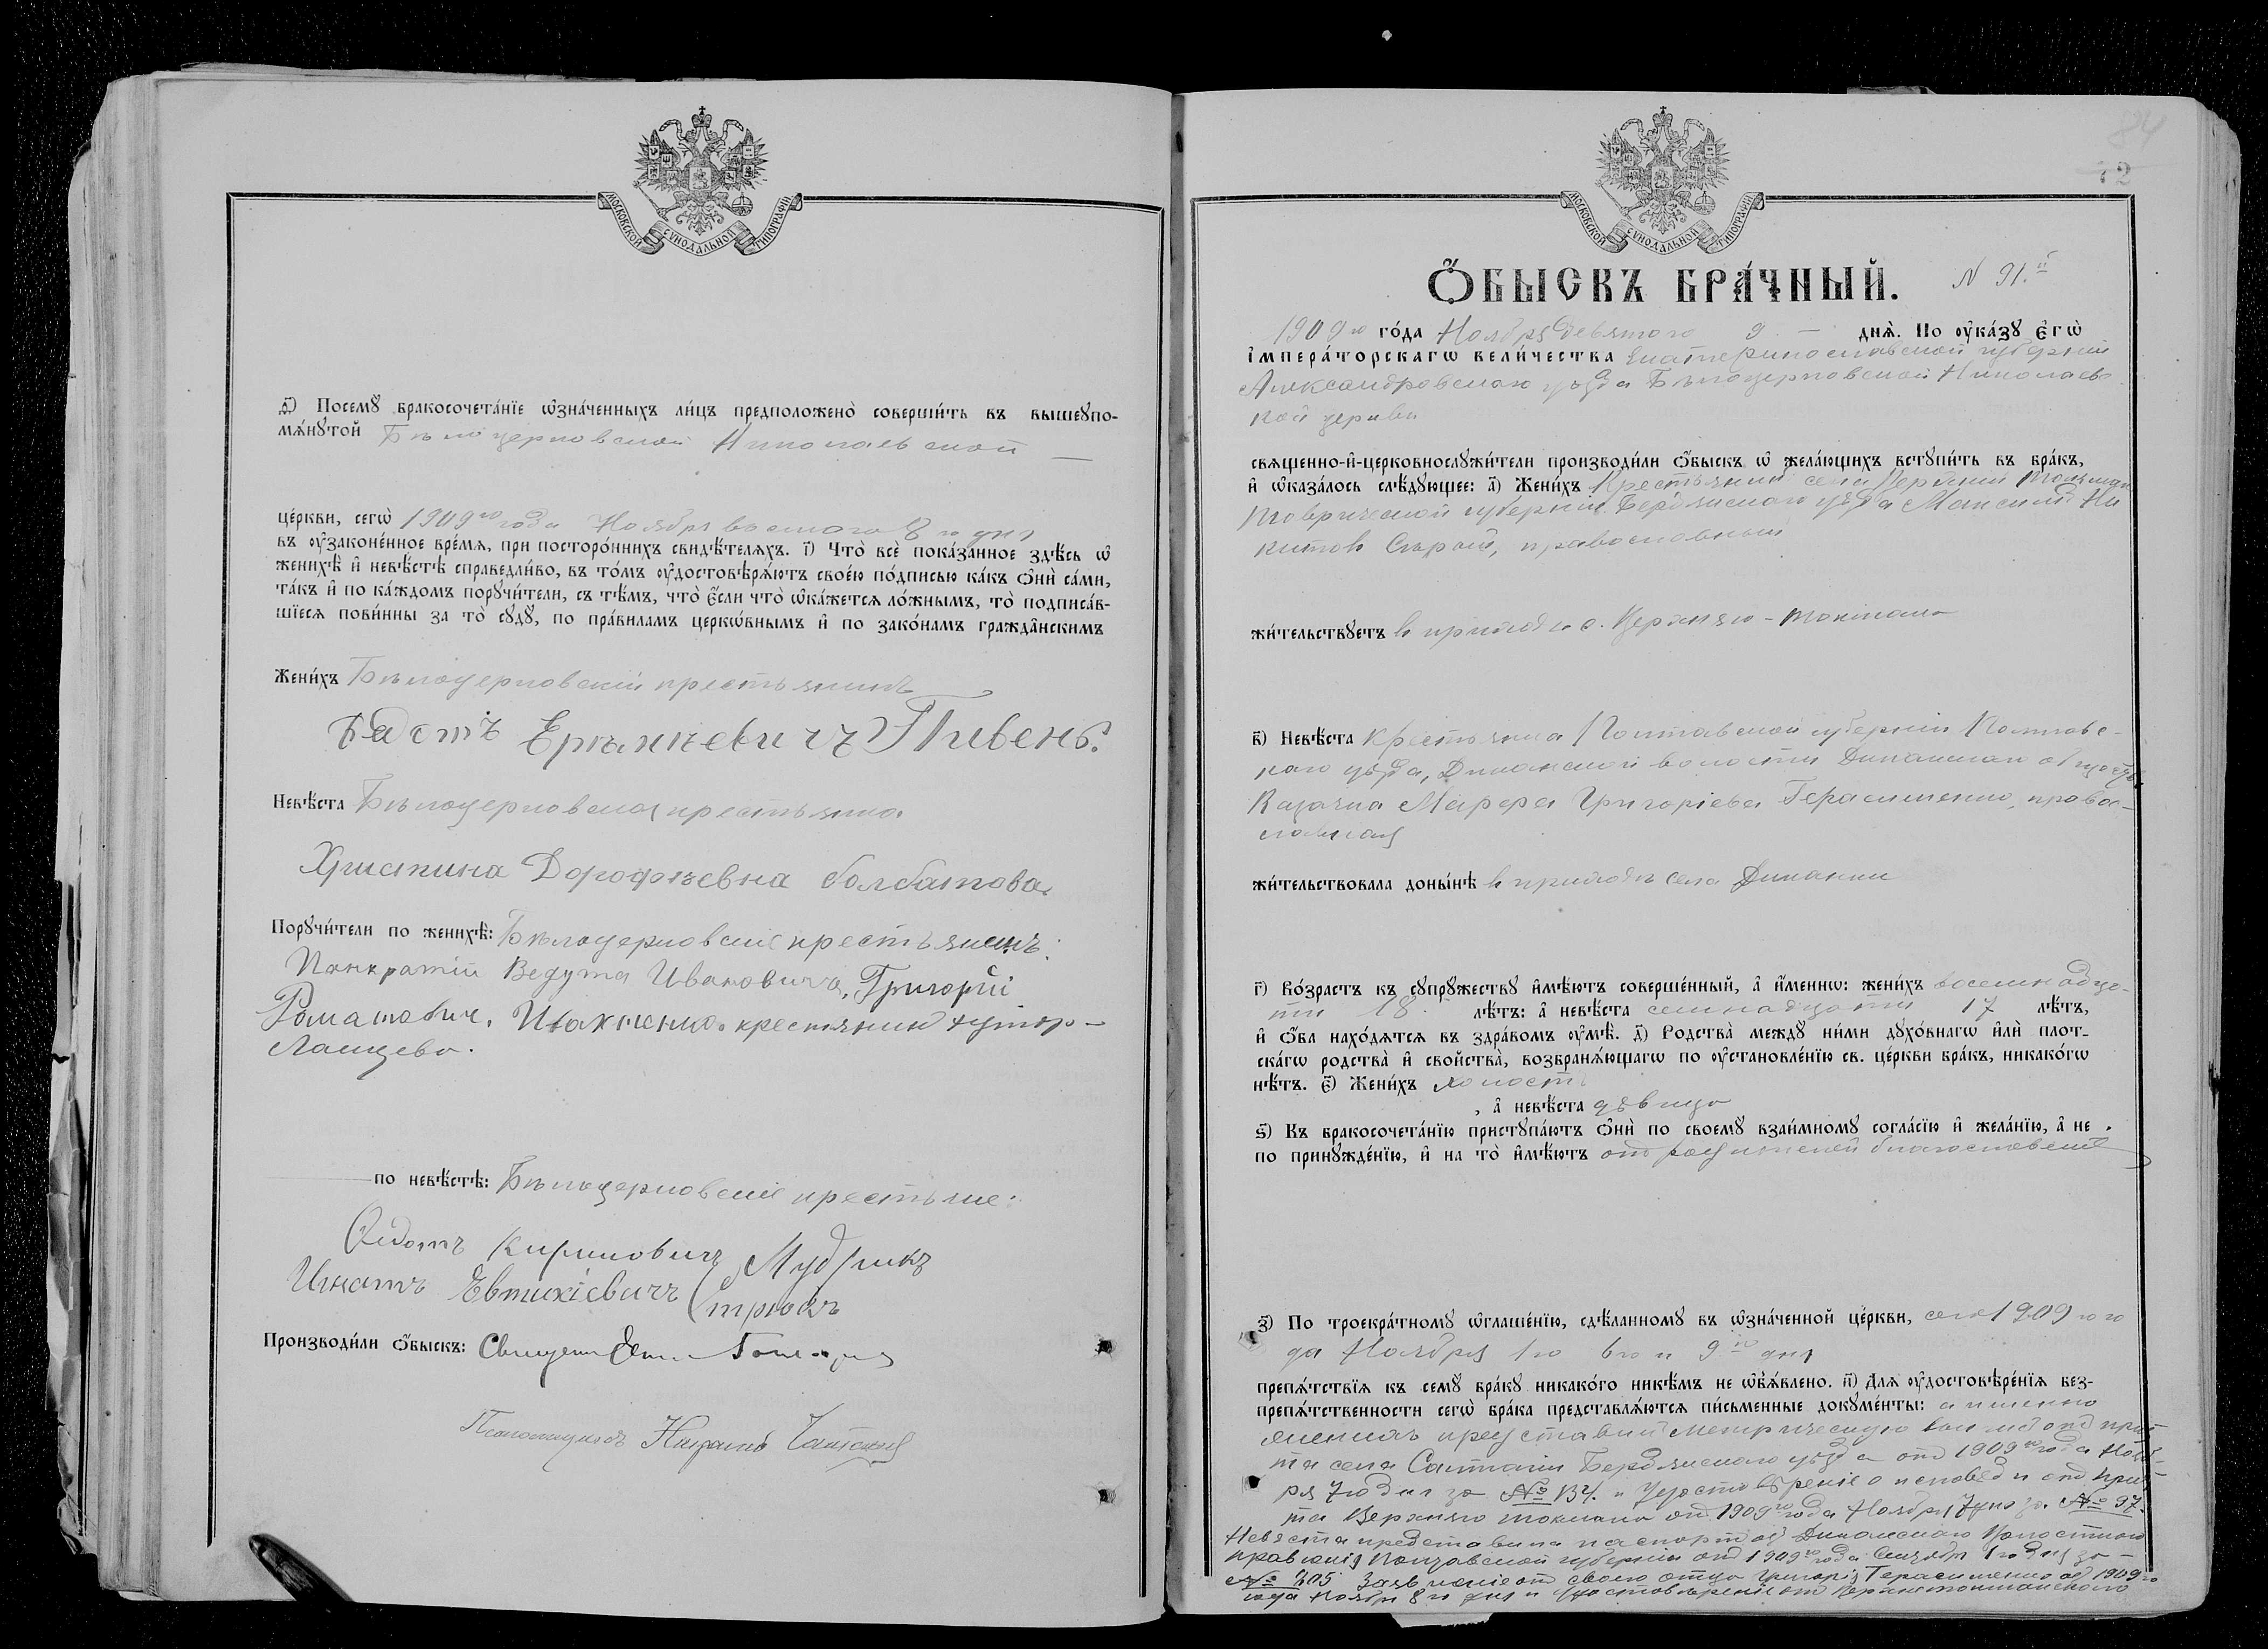 МОСКОВСКОЙ СѴНОДАЛЬНОЙ ТИПОГРАФІИ
д҃) Посемꙋ бракосочета́нїе ѡ҆зна́ченныхъ ли́цъ предположено̀ соверши́ть въ вышеꙋпо-
мѧ́нꙋтой Бѣлоцерковской Николаевской
це́ркви, сегѡ̀ 1909го года Ноября восмого 8го дня
въ ᲂу҆законе́нное вре́мѧ, при посторо́ннихъ свидѣ́телѧхъ. і҃) Что̀ всѐ пока́занное здѣ́сь ѡ҆
женихѣ̀ и҆ невѣ́стѣ справедли́во, въ то́мъ ᲂу҆достовѣрѧ́ютъ свое́ю по́дписью ка́къ ѻ҆нѝ са́ми,
та́къ и҆ по ка́ждомъ порꙋчи́тели, съ тѣ́мъ, что̀ є҆́сли что̀ ѡ҆ка́жетсѧ ло́жнымъ, то̀ подписа́в-
шїесѧ пови́нны за то̀ сꙋдꙋ̀, по пра́виламъ церкѡ́внымъ и҆ по зако́намъ гражда̂нскимъ
Жени́хъ Бѣлоцерковскій крестьянинъ
Пивень.
Невѣ́ста Бѣлоцерковская крестьянка
Христина Дорофѣевна Болбатова.
Порꙋчи́тели по женихѣ̀: Бѣлоцерковскіе крестьяне:
Панкратій Ведута Ивановичъ, Григорій
Романович. Ивахненко. крестянин хутор-
по невѣ́стѣ: Бѣлоцерковскіе крестьяне:
Федотъ Кириловичъ Мудрикъ
Игнатъ Евтихіевичъ
Производи́ли ѻ҆́быскъ: Священ
Псаломщикъ
84
МОСКОВСКОЙ СѴНОДАЛЬНОЙ ТИПОГРАФІИ
Ѻ҆́БЫСКЪ БРА́ЧНЫЙ. N 91.й
1909го го́да Ноября девятого 9 днѧ̀. По ᲂу҆ка́зꙋ є҆гѡ̀
і҆мпера́торскагѡ вели́чества Екатеринославской губерніи
Александровского уѣзда Бѣлоцерковской Николаевс-
кой церкви
свѧщенно-и҆-церковнослꙋжи́тели производи́ли ѻ҆́быскъ ѡ҆ жела́ющихъ встꙋпи́ть въ бра́къ,
и҆ ѡ҆каза́лось слѣ́дꙋющее: а҃) Жени́хъ Крестьянин села Верхній Токмак
Таврической губерніи Бердянского уѣзда Максим Ни
китов Сърый, православный
жи́тельствꙋетъ в приходѣ с. Верхняго-Токмака
в҃) Невѣ́ста крестьянка Полтавской губерніи Полтавс-
кого уѣзда, Диканской волости Диканскаго общества
Казачка Марфа Григоріева Герасименко, правос-
лавная
жи́тельствовала доны́нѣ в приходѣ села Диканки
г҃) Во́зрастъ къ сꙋпрꙋ́жествꙋ и҆мѣ́ютъ соверше́нный, а҆ и҆́меннѡ: жени́хъ восемнадца-
ти 18 лѣ́тъ: а҆ невѣ́ста семнадцати 17 лѣ́тъ,
и҆ ѻ҆́ба нахо́дѧтсѧ въ здра́вомъ ᲂу҆мѣ̀. д҃) Родства̀ междꙋ ни́ми дꙋхо́внагѡ и҆лѝ плот-
ска́гѡ родства̀ и҆ свойства̀, возбранѧ́ющагѡ по ᲂу҆становле́нїю св. це́ркви бра́къ, никако́гѡ
нѣ́тъ. є҃) Жени́хъ холостъ
, а҆ невѣ́ста дѣвица
ѕ҃) Къ бракосочета́нїю пристꙋпа́ютъ ѻ҆нѝ по своемꙋ̀ взаи́мномꙋ согла́сїю и҆ жела́нїю, а҆ не
по принꙋжде́нїю, и҆ на то̀ и҆мѣ́ютъ от родителей благословеніе
з҃) По троекра́тномꙋ ѡ҆глаше́нїю, сдѣ́ланномꙋ въ ѡ҆зна́ченной це́ркви, сего 1909го го
да Ноября 1го 6го и 9го дня
препѧ́тствїѧ къ семꙋ̀ бра́кꙋ никако́го никѣ́мъ не ѡ҆б̾ѧ́влено. и҃) Длѧ ᲂу҆достовѣре́нїѧ без-
препѧ́тственности сегѡ̀ бра́ка представлѧ́ютсѧ пи́сьменные докꙋме́нты: а именно
жених представил метрическую выпись от прич
та села Бердянского уѣзда от 1909го года Нояб-
ря 7го дня за № 134. и Удостовѣреніе о исповѣди от прич-
та Верхняго токмака от 1909го года Ноября 7 дня за № 97.
Невѣста представила паспорт от Диканского Волостного
правленія Полтавской губерніи от 1909го года 1го дня за
№ 205 Заявленіе от своего отца Григорія Герасименко от 1909го
года Ноября 8го дня и Удостовѣреніе от Верхнетокмакского